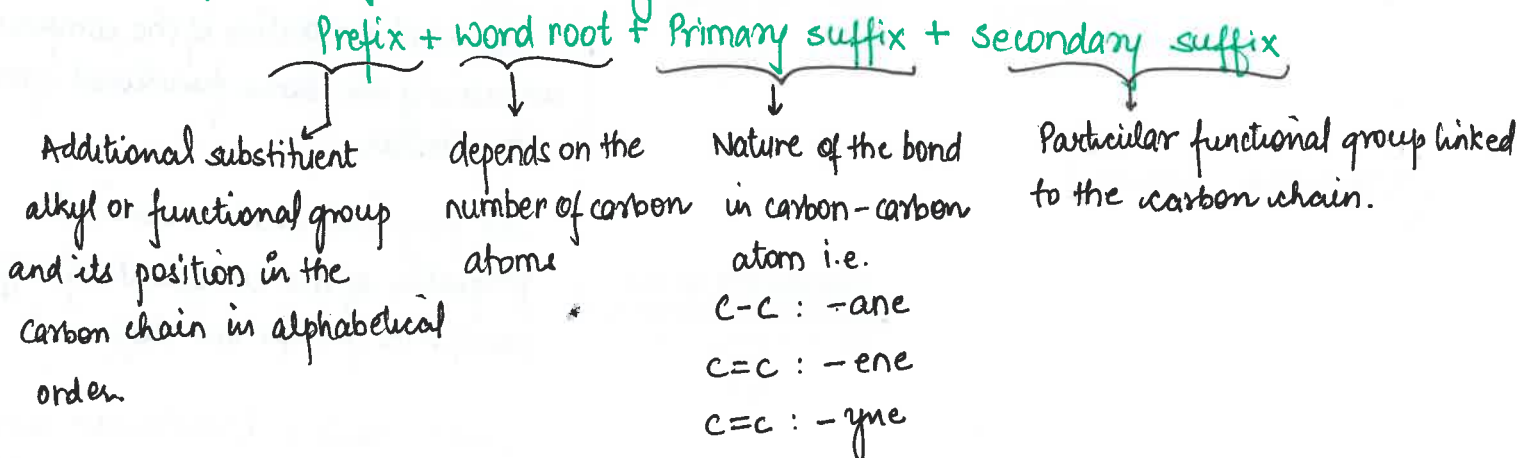 Prefix + word root + Primary suffix + secondary suffix
Additional substituent
alkyl or functional group
and its position in the
carbon chain in alphabetical
order.
depends on the
number of carbon
atoms
Nature of the bond
in carbon-carbon
atom i.e.
C-C : -ane
C=C : -ene
C=C : -yne
Particular functional group linked
to the carbon chain.